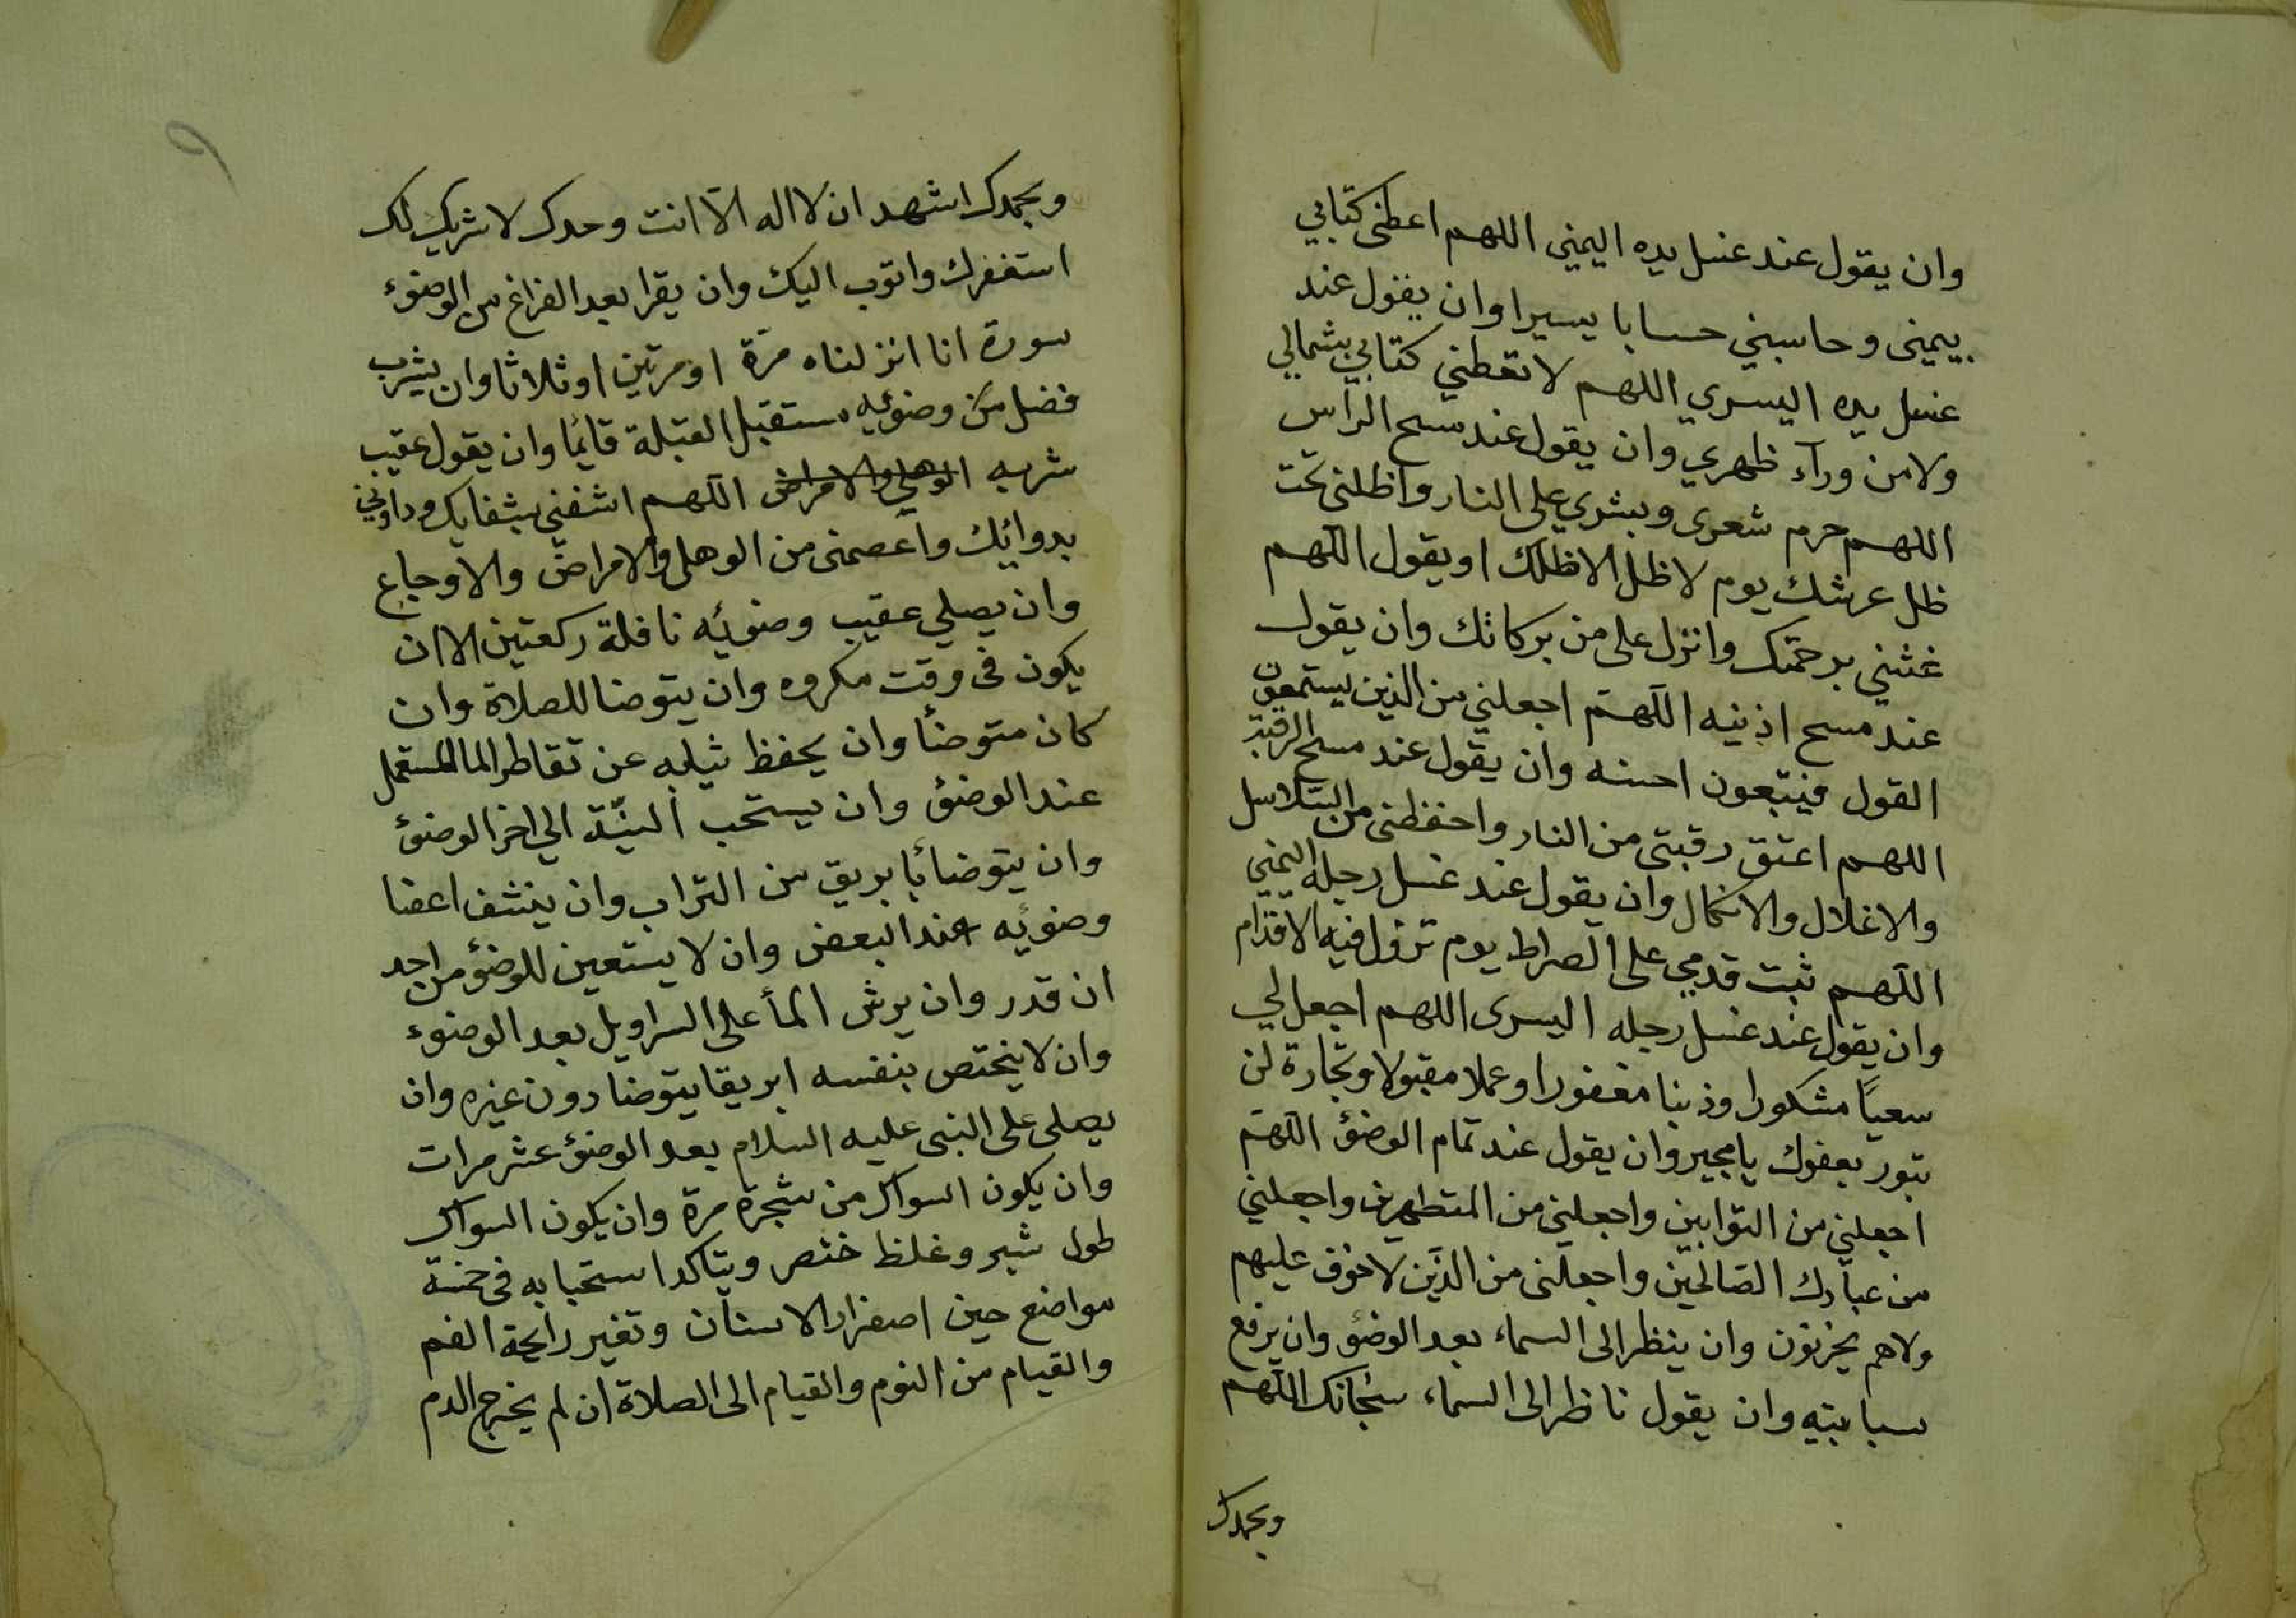 وان يقول عند غسل يده اليمني اللهم اعطنى كتابي
بيمينى وحاسبني حسابا يسيرا وان يقول عند
غسل يده اليسري اللهم لا تعطني كتابي بشمالي
ولا من ورآء ظهري وان يقول عند مسح الرأس
اللهم حرم شعرى وبشري على النار واظلنى تحت
ظل عرشك يوم لا ظل الا ظلك او يقول اللهم
غشني برحمتك وانزل على من بركاتك وان يقول
عند مسح اذنيه اللهم اجعلني من الذين يستمعون
القول فيتبعون احسنه وان يقول عند مسح الرقبة
اللهم اعتق رقبتى من النار واحفظنى من السلاسل
والاغلال والانكال وان يقول عند غسل رجله اليمني
اللهم ثبت قدمي على الصراط يوم تزل فيه الاقدام
وان يقول عند غسل رجله اليسرى اللهم اجعل لي
سعيا مشكورا وذنبا مغفورا وعملا مقبولا وتجارة لن
تبور بعفوك يا مجير وان يقول عند تمام الوضؤ اللهم
اجعلني من التوابين واجعلني من المتطهرين واجعلني
من عبادك الصالحين واجعلنى من الذين لا خوف عليهم
ولا هم يحزنون وان ينظر الى السماء بعد الوضؤ وان يرفع
سبابتيه وان يقول ناظرا الى السماء سبحانك اللهم
وبحمدك
وبحمدك اشهد ان لا اله الا انت وحدك لا شريك لك
استغفرك واتوب اليك وان يقرا بعد الفراغ من الوضوء
سورة انا انزلناه مرة او مرتين او ثلاثا وان يشرب
فضل من وضوئه مستقبل القبلة قايما وان يقول عقيب
شربه الوهل والامراض اللهم اشفني بشفايك وداونى
بدوائك واعصمنى من الوهل والامراض والاوجاع
وان يصلي عقيب وضوئه نافلة ركعتين الا ان
يكون فى وقت مكروه وان يتوضا للصلاة وان
كان متوضأ وان يحفظ ثيابه عن تقاطر الما المستعمل
عند الوضؤ وان يستحب النية الي اخر الوضؤ
وان يتوضأ بابريق من التراب وان ينشف اعضا
وضوئه عند البعض وان لا يستعين للوضؤ من احد
ان قدر وان يرش الماء على السراويل بعد الوضوء
وان لا يختص بنفسه ابريقا يتوضا دون غيره وان
يصلى على النبى عليه السلام بعد الوضؤ عشر مرات
وان يكون السواك من شجرة مرة وان يكون السواك
طول شبر وغلظ خنصر ويتاكد استحبابه فى خمسة
مواضع حين اصفرار الاسنان وتغير رايحة الفم
والقيام من النوم والقيام الى الصلاة ان لم يخرج الدم